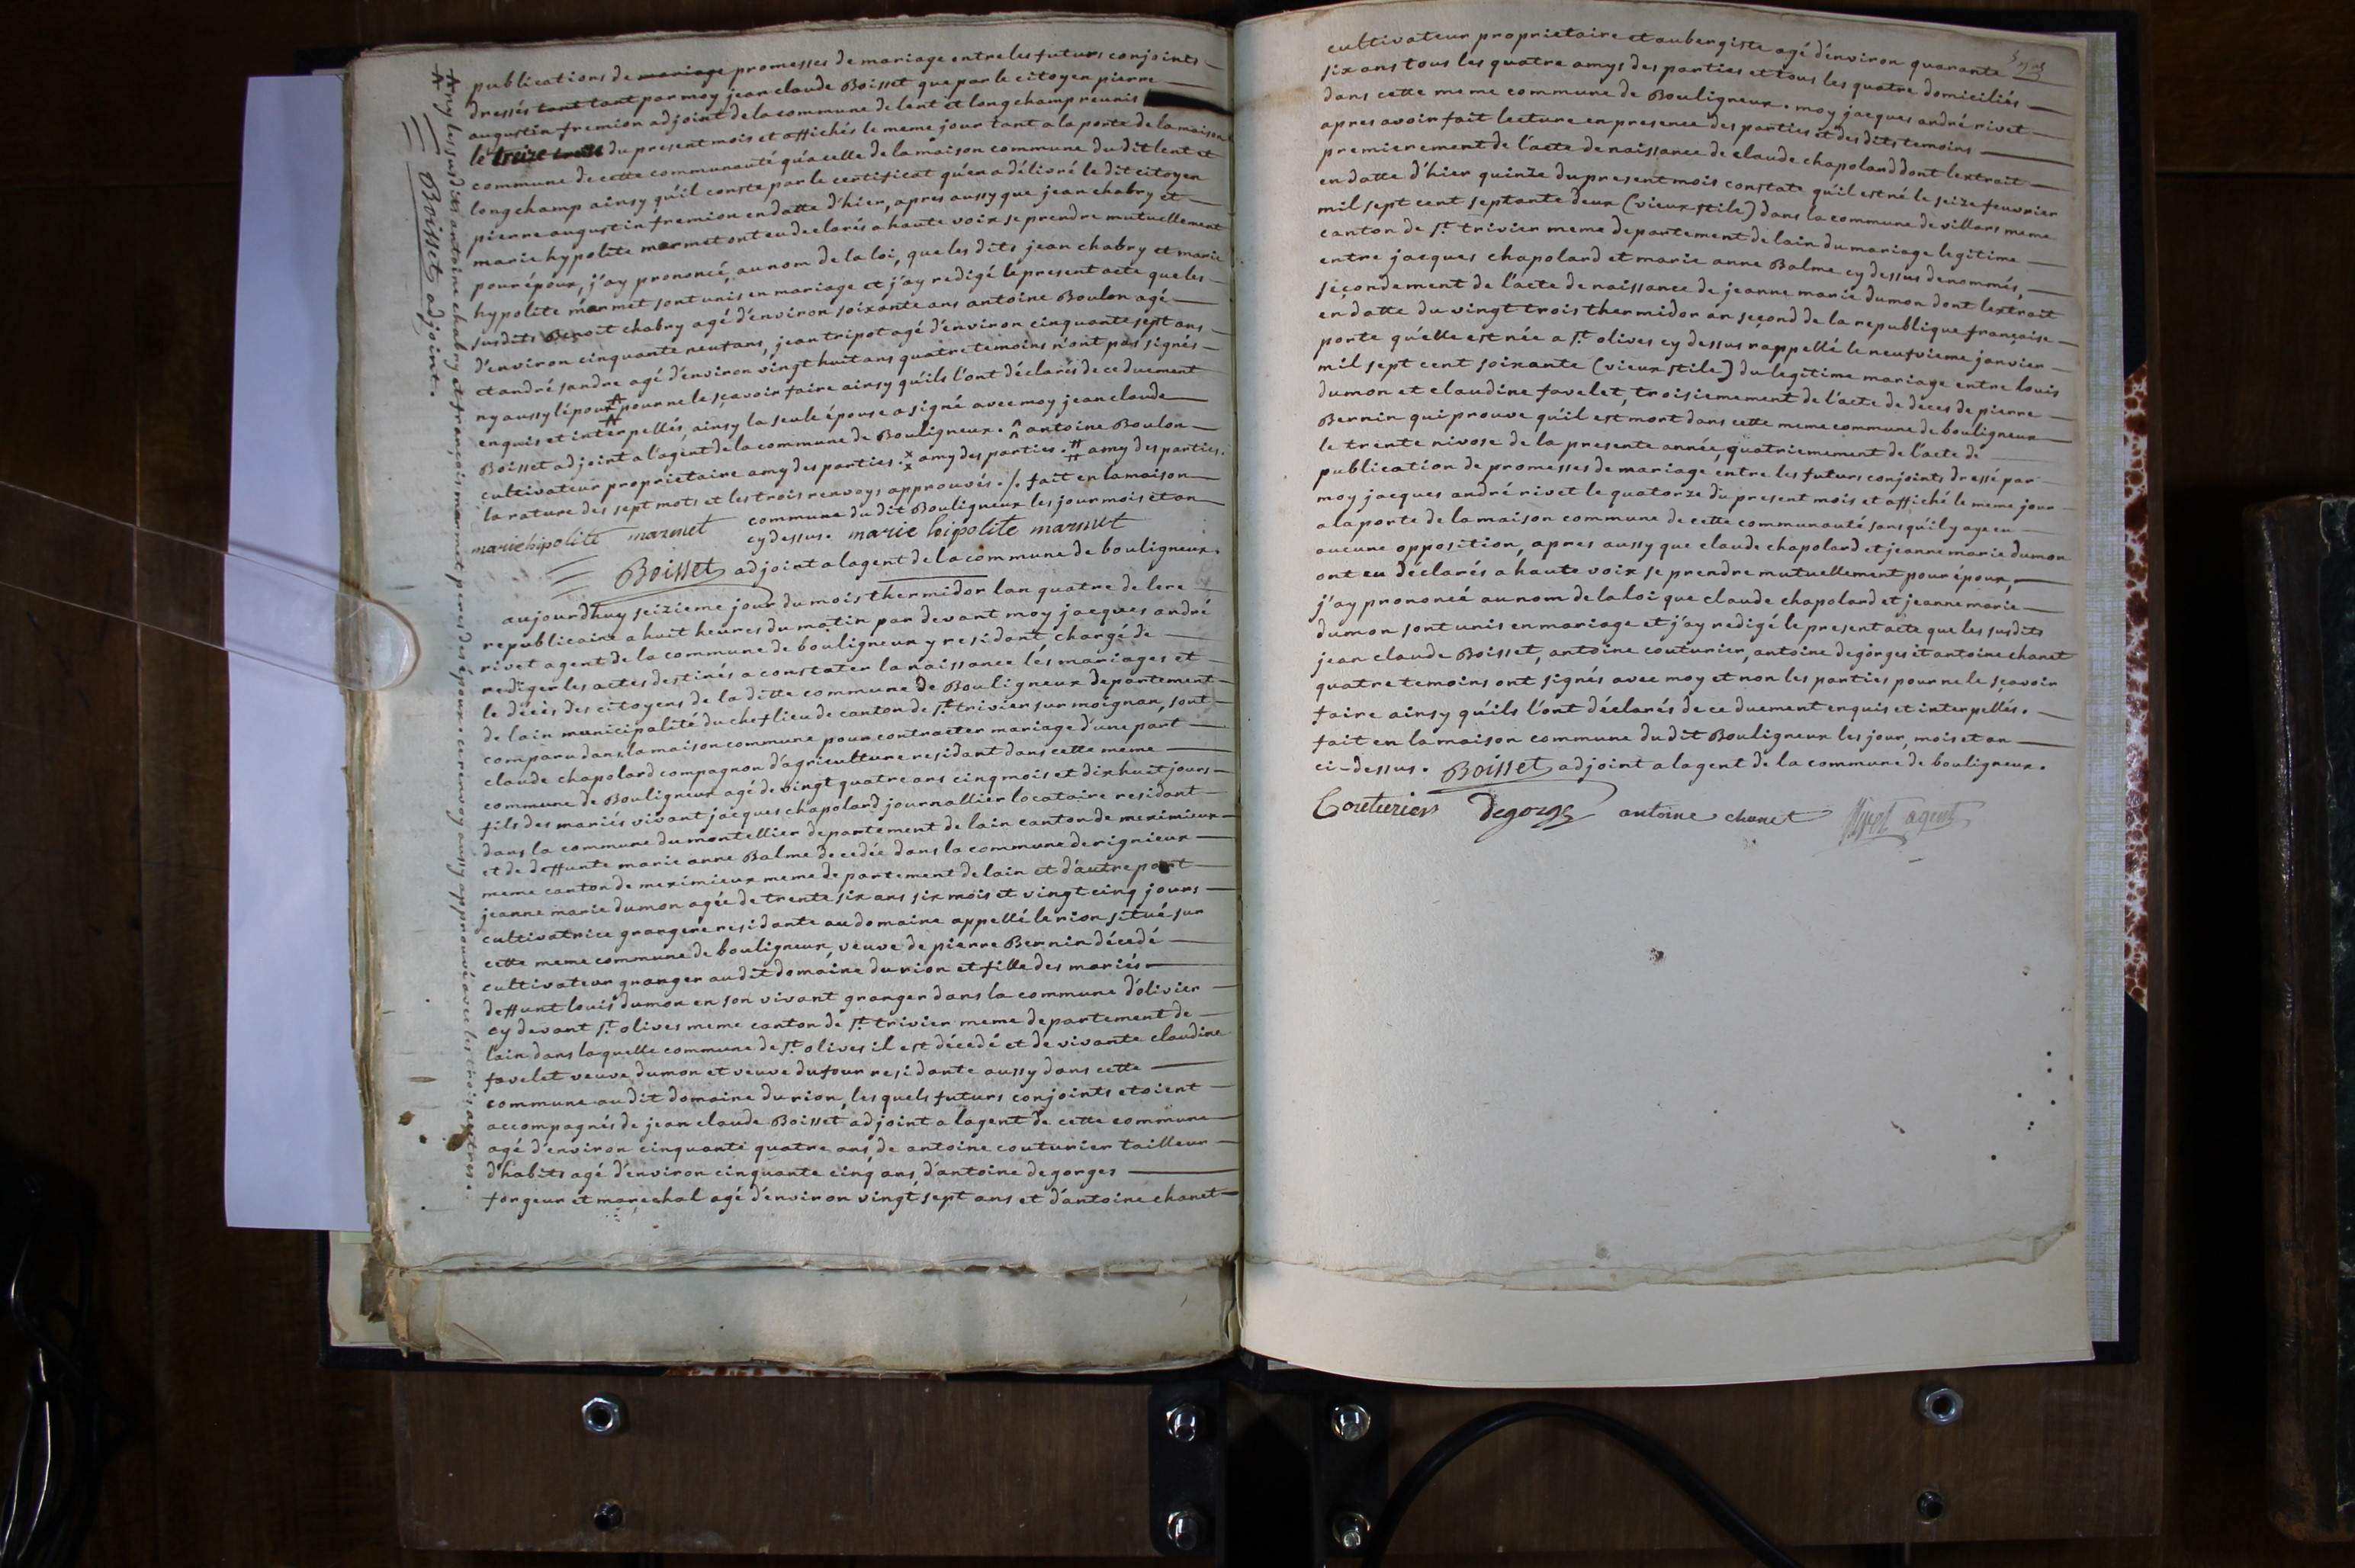 publications de mariage promesses de mariage entre les futurs conjoints
dressés tant tant par moy jean claude Boisset que par le citoyen pierre
augustin fremion adjoint de la commune de lent et longchamp reunis
le treize du present mois et affichés le meme jour tant a la porte de la maison
commune de cette communauté qu'a celle de la maison commune du dit lent et
longchamp ainsy qu'il conste par le certificat qu'en a délivré le dit citoyen
pierre augustin fremion en datte d'hier, apres aussy que jean chabry et
marie hypolite marmet ont eu declarés a haute voix se prendre mutuellement
pour époux, j'ay prononcé, au nom de la loi, que les dits jean chabry et marie
hypolite marmet sont unis en mariage et j'ay redigé le present acte que les
susdits Benoit chabry agé d'environ soixante ans antoine Boulon agé
d'environ cinquante neuf ans, jean tripot agé d'environ cinquante sept ans
et andré sandre agé d'environ vingt huit ans quatre temoins n'ont pas signés
ny aussy l'époux pour ne le sçavoir faire ainsy qu'ils l'ont déclarés de ce duement
enquis et interpellés, ainsy la seule épouse a signé avec moy jean claude
Boisset adjoint a l'agent de la commune de Bouligneux. antoine Boulon
cultivateur proprietaire amy des parties. x amy des parties. # amy des parties.
la rature des sept mots et les trois renvoys approuvés ./. fait en la maison
commune du dit Bouligneux les jour mois et an
cy dessus. marie hipolite marmet
marie hipolite marmet
Boisset adjoint a lagent de la commune de bouligneux.
ny les susdits antoine chabry et françois marmet peres des époux. ce renvoy aussy approuvé avec les trois autres.
Boisset adjoint.
aujourdhuy seizieme jour du mois thermidor lan quatre de lere
republicaine a huit heures du matin par devant moy jacques andré
rivet agent de la commune de bouligneux y residant, chargé de
rediger les actes destinés a constater la naissance les mariages et
le décès des citoyens de la ditte commune de Bouligneux departement
de lain municipalité du chef lieu de canton de st. trivier sur moignan, sont
comparu dans la maison commune pour contracter mariage d'une part
claude chapolard compagnon d'agriculture residant dans cette meme
commune de Bouligneux agé de vingt quatre ans cinq mois et dix huit jours
fils des mariés vivant jacques chapolard journallier locataire residant
dans la commune du montellier departement de lain canton de meximieux
et de deffunte marie anne Balme decedée dans la commune de rignieux
meme canton de meximieux meme departement de lain et d'autre part
jeanne marie dumon agée de trente six ans six mois et vingt cinq jours
cultivatrice grangere residante au domaine appellé le rion situé sur
cette meme commune de bouligneux, veuve de pierre Bernin décedé
cultivateur granger au dit domaine du rion et fille des mariés
deffunt louis dumon en son vivant granger dans la commune d'olivier
cy devant st. olives meme canton de st. trivier meme departement de
l'ain dans laquelle commune de st. olives il est décedé et de vivante claudine
favelet veuve dumon et veuve dufour residante aussy dans cette
commune au dit domaine du rion, les quels futurs conjoints etoient
accompagnés de jean claude Boisset adjoint a lagent de cette commune
agé d'environ cinquante quatre ans, de antoine couturier tailleur
d'habits agé d'environ cinquante cinq ans, d'antoine degorges
forgeur et marechal agé d'environ vingt sept ans et d'antoine chanet
cultivateur proprietaire et aubergiste agé d'environ quarante
six ans tous les quatre amys des parties et tous les quatre domiciliés
dans cette meme commune de Bouligneux. moy jacques andré rivet
apres avoir fait lecture en presence des parties et des dits temoins
premierement de l'acte de naissance de claude chapolard dont lextrait
en datte d'hier quinze du present mois constate qu'il est né le seize feuvrier
mil sept cent septante deux (vieux stile) dans la commune de villars meme
canton de st. trivier meme departement de lain du mariage legitime
entre jacques chapolard et marie anne Balme cy dessus denommés,
seçondement de l'acte de naissance de jeanne marie dumon dont lextrait
en datte du vingt trois thermidor an seçond de la republique française
porte qu'elle est née a st. olives cy dessus rappellé le neufvieme janvier
mil sept cent soixante (vieux stile) du legitime mariage entre louis
dumon et claudine favelet, troisiemement de l'acte de déces de pierre
Bernin qui prouve qu'il est mort dans cette meme commune de bouligneux
le trente nivose de la presente année quatriemement de l'acte de
publication de promesses de mariage entre les futurs conjoints dressé par
moy jacques andré rivet le quatorze du present mois et affiché le meme jour
a la porte de la maison commune de cette communauté sans qu'il y aye eu
aucune opposition, apres aussy que claude chapolard et jeanne marie dumon
ont eu déclarés a haute voix se prendre mutuellement pour époux,
j'ay prononcé au nom de la loi que claude chapolard et jeanne marie
dumon sont unis en mariage et j'ay redigé le present acte que les susdits
jean claude Boisset, antoine couturier, antoine degorges et antoine chanet
quatre temoins ont signés avec moy et non les parties pour ne le sçavoir
faire ainsy qu'ils l'ont déclarés de ce duement enquis et interpellés.
fait en la maison commune du dit Bouligneux les jour, mois et an
ci-dessus. Boisset adjoint a lagent de la commune de bouligneux.
Couturier Degorge antoine chanet Rivet agent